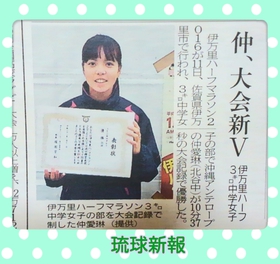 仲、大会新V
伊万里ハーフ
3㌔中学女子
伊万里ハーフマラソン2
016が11日、佐賀県伊万
里市で行われ、3㌔中学女
子の部で沖縄アンテロープ
の仲愛琳(北谷中)が10分37
秒の大会記録で優勝した。
表彰状
伊万里ハーフマラソン3㌔
中学女子の部を大会記録で
制した仲愛琳(提供)
琉球新報